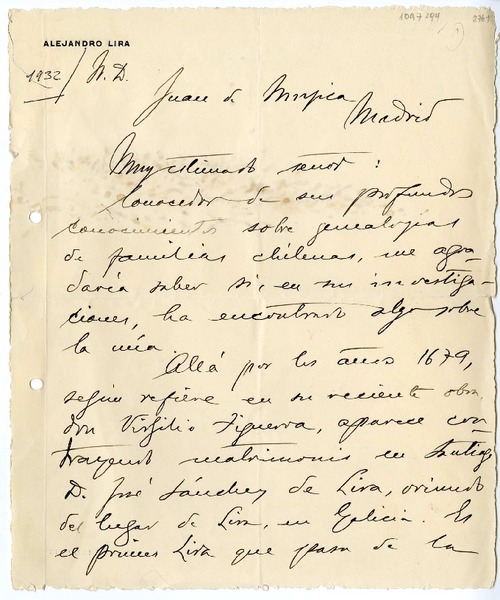 1097294
ALEJANDRO LIRA
1932 / N. D.
Juan de Mujica
Madrid
Muy estimado señor:
Conocedor de sus profundos
conocimientos sobre genealogías
de familias chilenas, me agra-
daría saber si, en sus investiga-
ciones, ha encontrado algo sobre
la mía.
Allá por los años 1679,
según refiere en su reciente obra
don Virgilio Figueroa, aparece con-
trayendo matrimonio en Santiago
D. José Sánchez de Lira, oriundo
del lugar de Lira, en Galicia. Es
el primer Lira que pasa de la